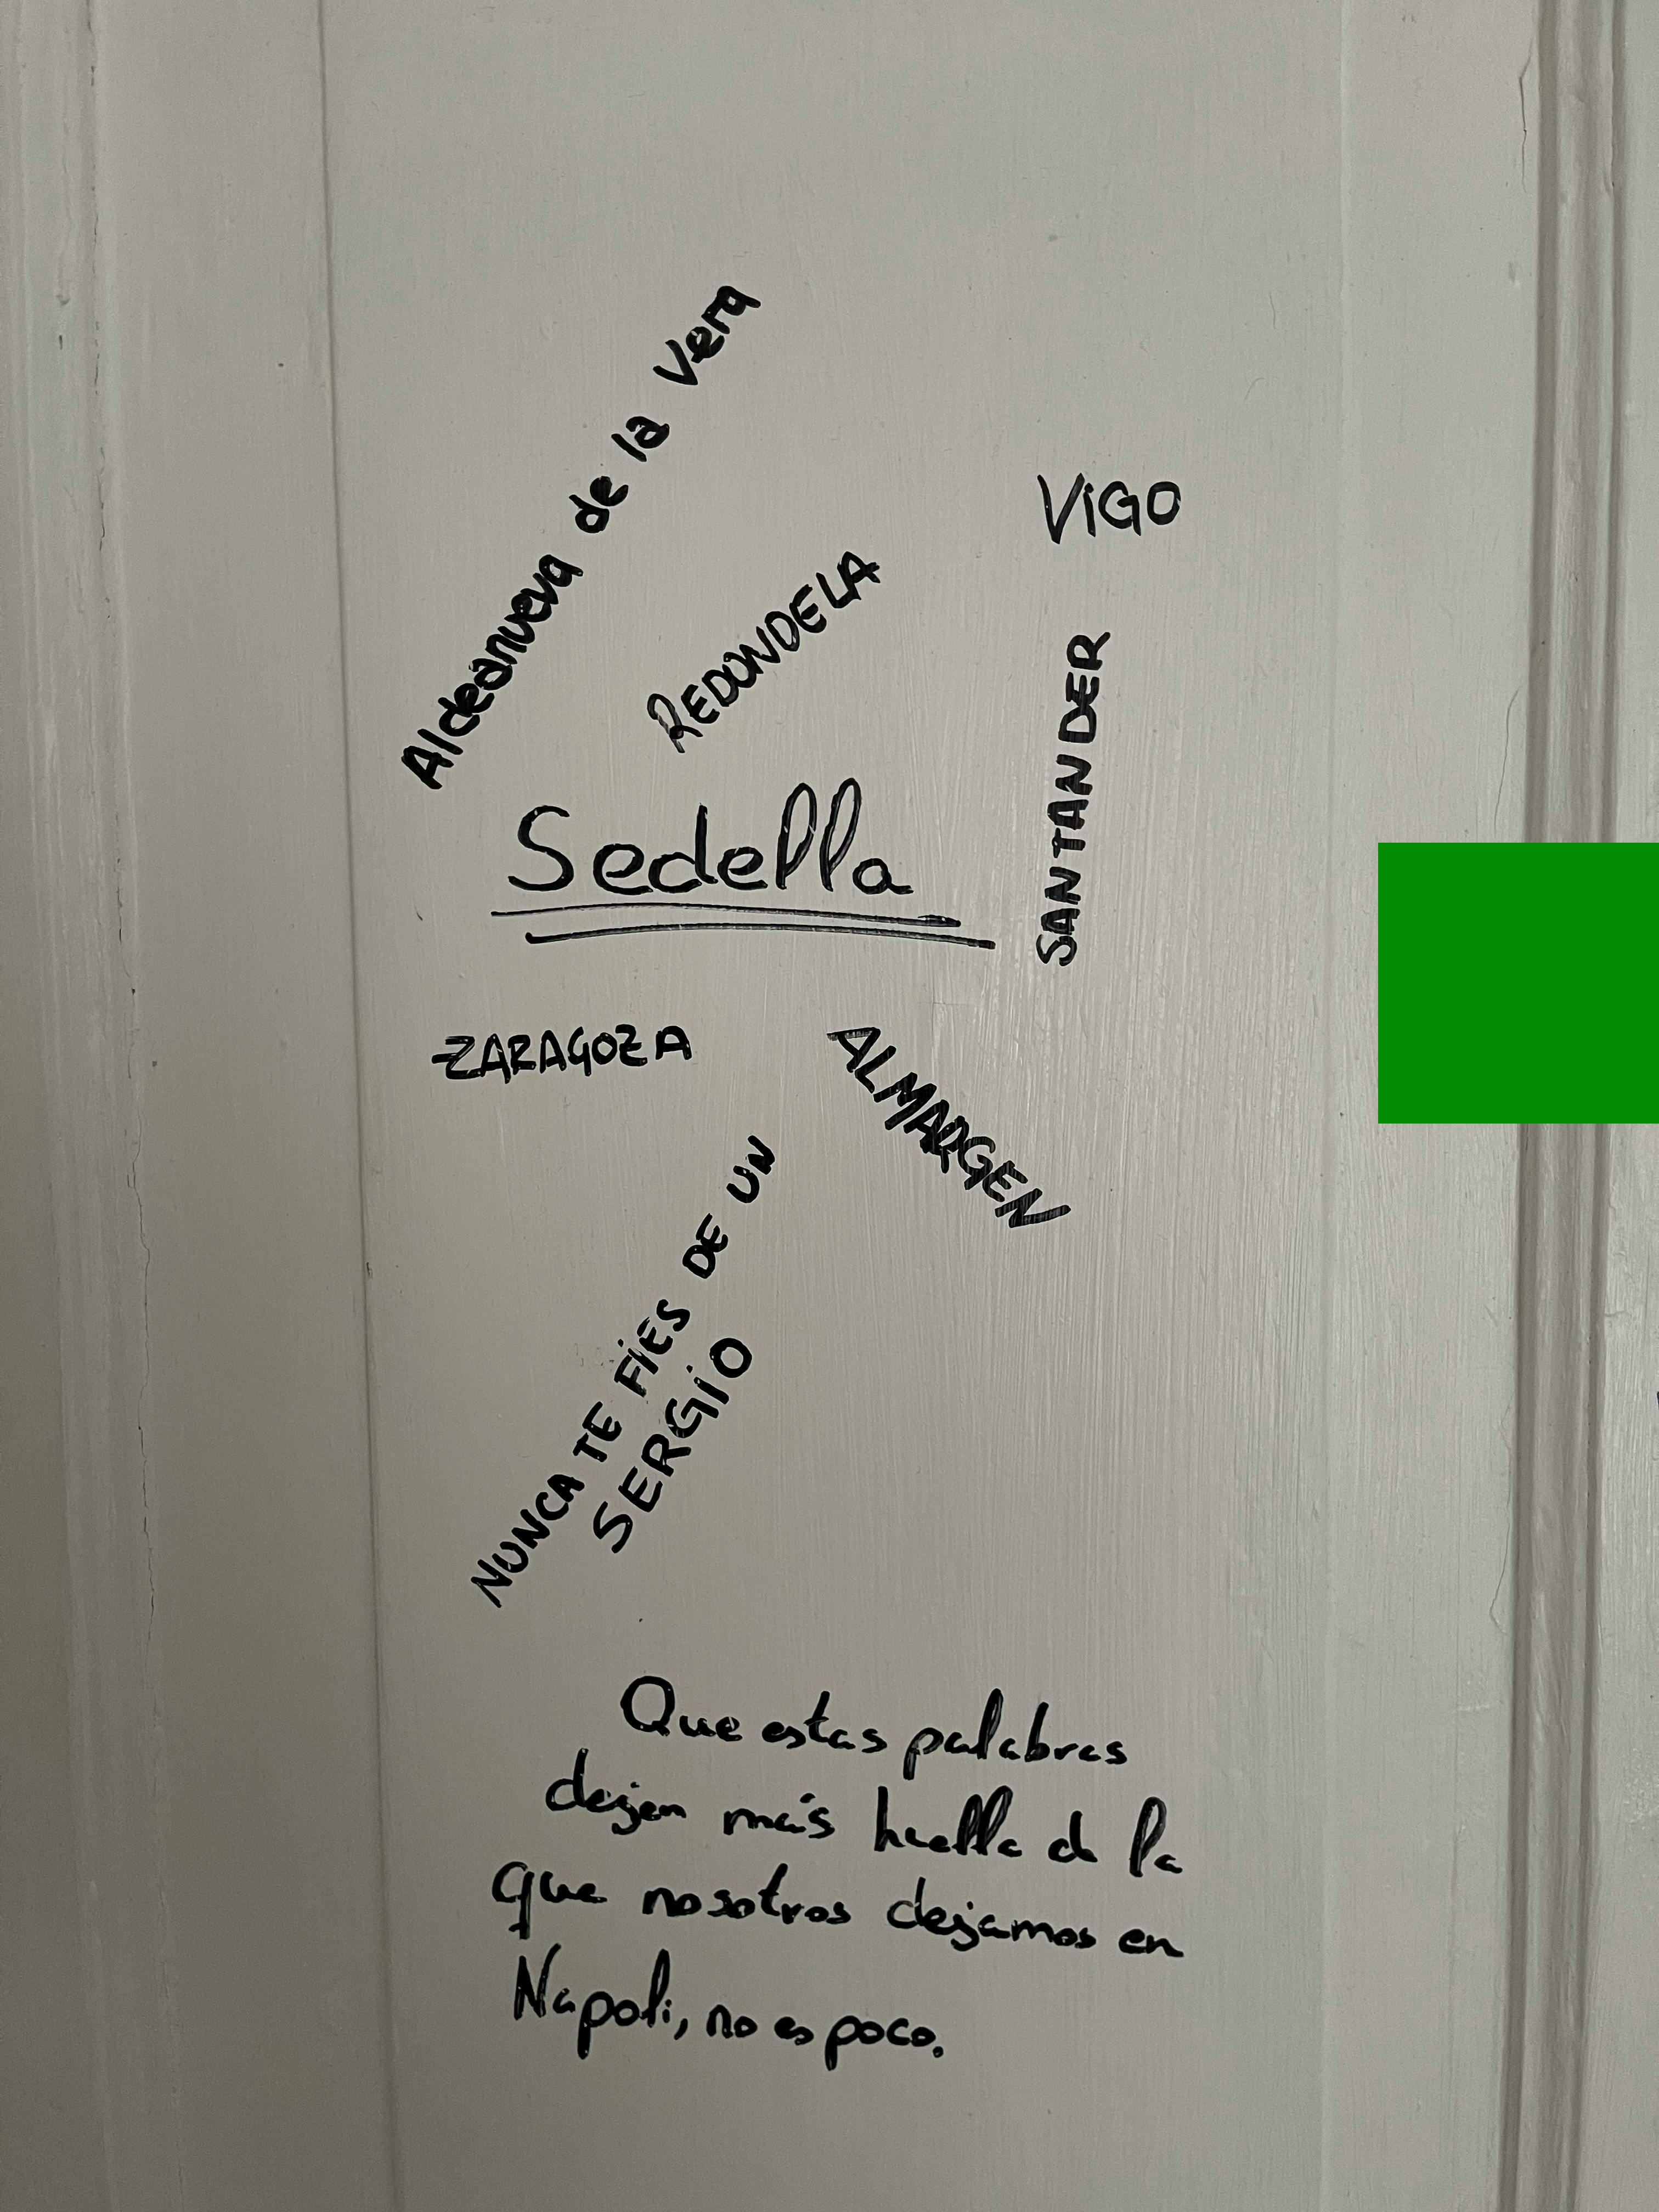 Aldeanueva de la Vera
VIGO
REDONDELA
SANTANDER
Sedella
ZARAGOZA
ALMARGEN
NUNCA TE FIES DE UN
SERGIO
Que estas palabras
dejen más huella de la
que nosotros dejamos en
Napoli, no es poco.